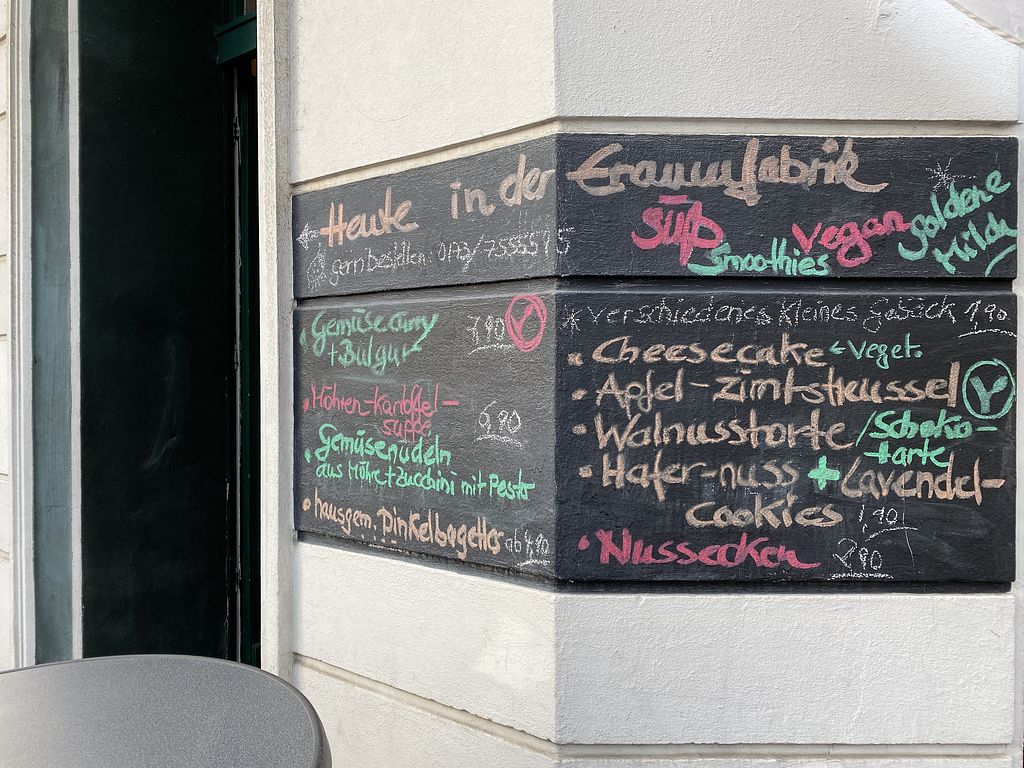 Heute in der Traumfabrik
gern bestellen: 0173/7555575
süß
vegan
Smoothies
goldene
Milch
Gemüsecurry 7,90 V
+ Bulgur
Möhren-Kartoffel-
suppe 6,90
Gemüsenudeln
aus Möhre + Zucchini mit Pesto
hausgem. Dinkelbagettes ab 4,90
* verschiedenes kleines Gebäck 1,90
Cheesecake ← Veget.
Apfel-zimtstreussel V
Walnusstorte / Schoko-
tarte
Hafer-nuss + Lavendel-
cookies 1,90
Nussecken 2,90